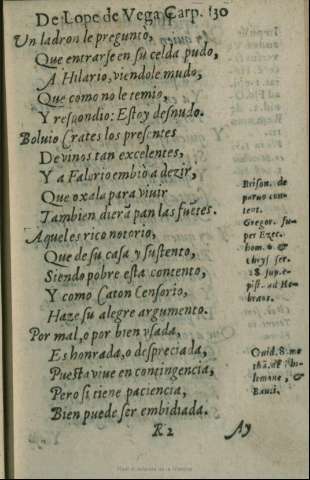 De Lope de Vega Carp. 130
Un ladron le pregunto,
Que entrarse en su celda pudo,
A Hilario, viendole mudo,
Que como no le temio,
Y respondio: Estoy desnudo.
Boluio Crates los presentes
De vinos tan excelentes,
Y a Falerio embiò a dezir,
Que oxala para viuir
Tambien dierã pan las fuẽtes.
Aquel es rico notorio,
Que de su casa y sustento,
Siendo pobre esta contento,
Y como Caton Censorio,
Haze su alegre argumento.
Por mal, o por bien vsada,
Es honrada, o despreciada,
Puesta viue en contingencia,
Pero si tiene paciencia,
Bien puede ser embidiada.
Brison. de
paruo con-
tent.
Gregor. su-
per Ezec.
hom. 6 &
chrys. ser.
28. sup. e-
pist. ad He-
braos.
Ouid. 8. me
tha. de
lemone, &
Bauci.
R 2
Ay